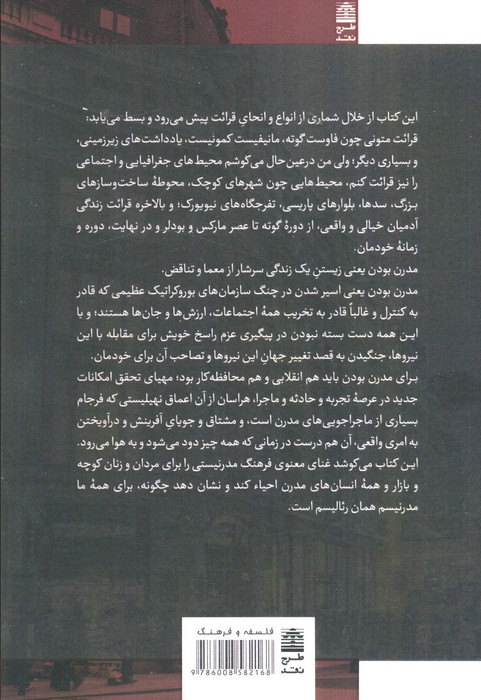 طرح
نقد
این کتاب از خلال شماری از انواع و انحایِ قرائت پیش می‌رود و بسط می‌یابد:
قرائت متونی چون فاوست گوته، مانیفیست کمونیست، یادداشت‌های زیرزمینی،
و بسیاری دیگر؛ ولی من درعین‌حال می‌کوشم محیط‌های جغرافیایی و اجتماعی
را نیز قرائت کنم، محیط‌هایی چون شهرهای کوچک، محوطهٔ ساخت‌وسازهای
بزرگ، سدها، بلوارهای پاریسی، تفرجگاه‌های نیویورک؛ و بالاخره قرائت زندگی
آدمیان خیالی و واقعی، از دورهٔ گوته تا عصر مارکس و بودلر و در نهایت، دوره و
زمانهٔ خودمان.
مدرن بودن یعنی زیستنِ یک زندگی سرشار از معما و تناقض.
مدرن بودن یعنی اسیر شدن در چنگ سازمان‌های بوروکراتیک عظیمی که قادر
به کنترل و غالباً قادر به تخریب همهٔ اجتماعات، ارزش‌ها و جان‌ها هستند؛ و با
این همه دست بسته نبودن در پیگیری عزم راسخ خویش برای مقابله با این
نیروها، جنگیدن به قصد تغییر جهانِ این نیروها و تصاحب آن برای خودمان.
برای مدرن بودن باید هم انقلابی و هم محافظه‌کار بود؛ مهیای تحقق امکانات
جدید در عرصهٔ تجربه و حادثه و ماجرا، هراسان از آن اعماق نهیلیستی که فرجام
بسیاری از ماجراجویی‌های مدرن است، و مشتاق و جویای آفرینش و درآویختن
به امری واقعی، آن هم درست در زمانی که همه چیز دود می‌شود و به هوا می‌رود.
این کتاب می‌کوشد غنای معنوی فرهنگ مدرنیستی را برای مردان و زنان کوچه
و بازار و همهٔ انسان‌های مدرن احیاء کند و نشان دهد چگونه، برای همهٔ ما
مدرنیسم همان رئالیسم است.
فلسفه و فرهنگ
9 786008 582168
طرح
نقد